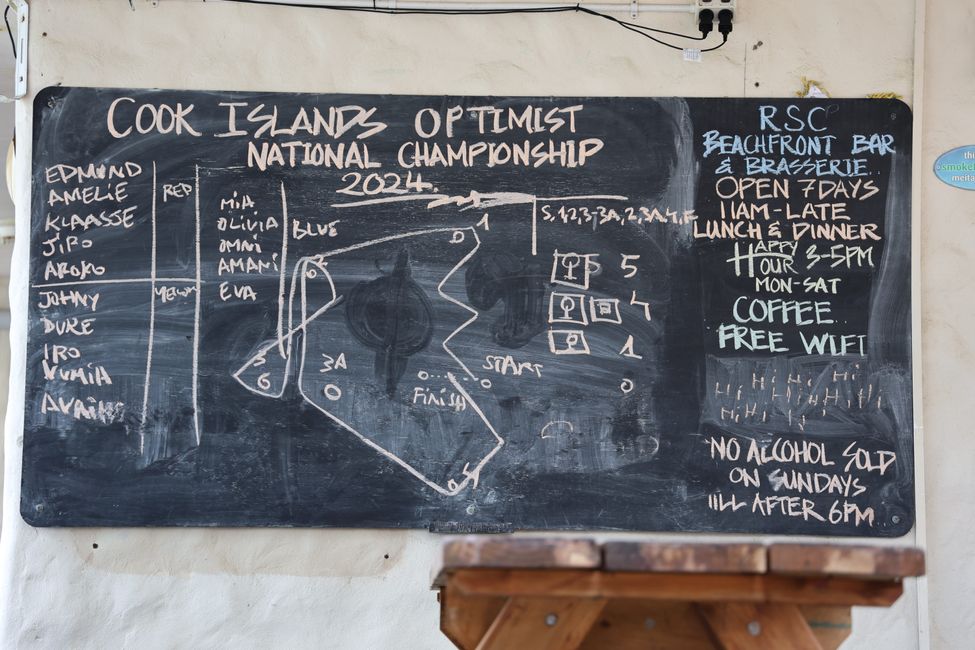 COOK ISLANDS OPTIMIST
NATIONAL CHAMPIONSHIP
2024.
EDMUND
AMELIE
KLAASSE
JIRO
AROKO
RED
JOHNY
DUKE
IRO
VUMIA
YELLOW
MIA
OLIVIA
OMNI
AMANI
EVA
BLUE
S,1,2,3-3A,2,3A,4,F
1
2
3
3A
4
6
START
FINISH
5
4
1
0
RSC
BEACHFRONT BAR
& BRASSERIE.
OPEN 7 DAYS
11AM-LATE
LUNCH & DINNER
HAPPY
HOUR 3-5PM
MON-SAT
COFFEE
FREE WIFI
Hi Hi Hi Hi
Hi Hi
NO ALCOHOL SOLD
ON SUNDAYS
TILL AFTER 6PM
smoke